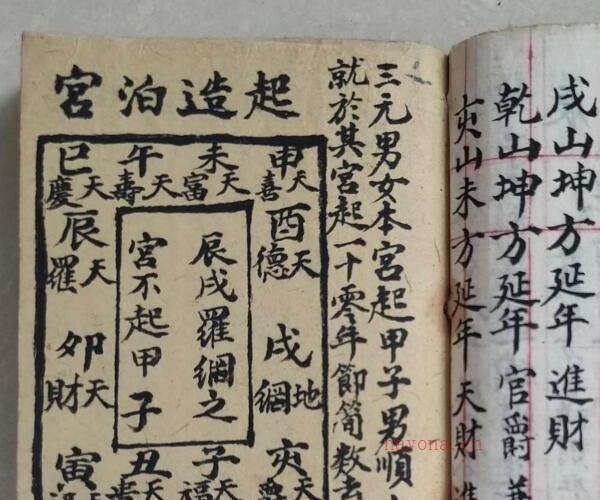 戌山坤方延年進財
乾山坤方延年官爵
亥山未方延年天財進
三元男女本宮起甲子男順
就於其宮起一十零年節簡數去
起造泊宮
申天喜
未天富
午天壽
巳天慶
酉天德
辰天羅
戌地綱
卯天財
辰戌羅綱之
宮不起甲子
亥天
子天福
丑天
寅天
nayona.cn